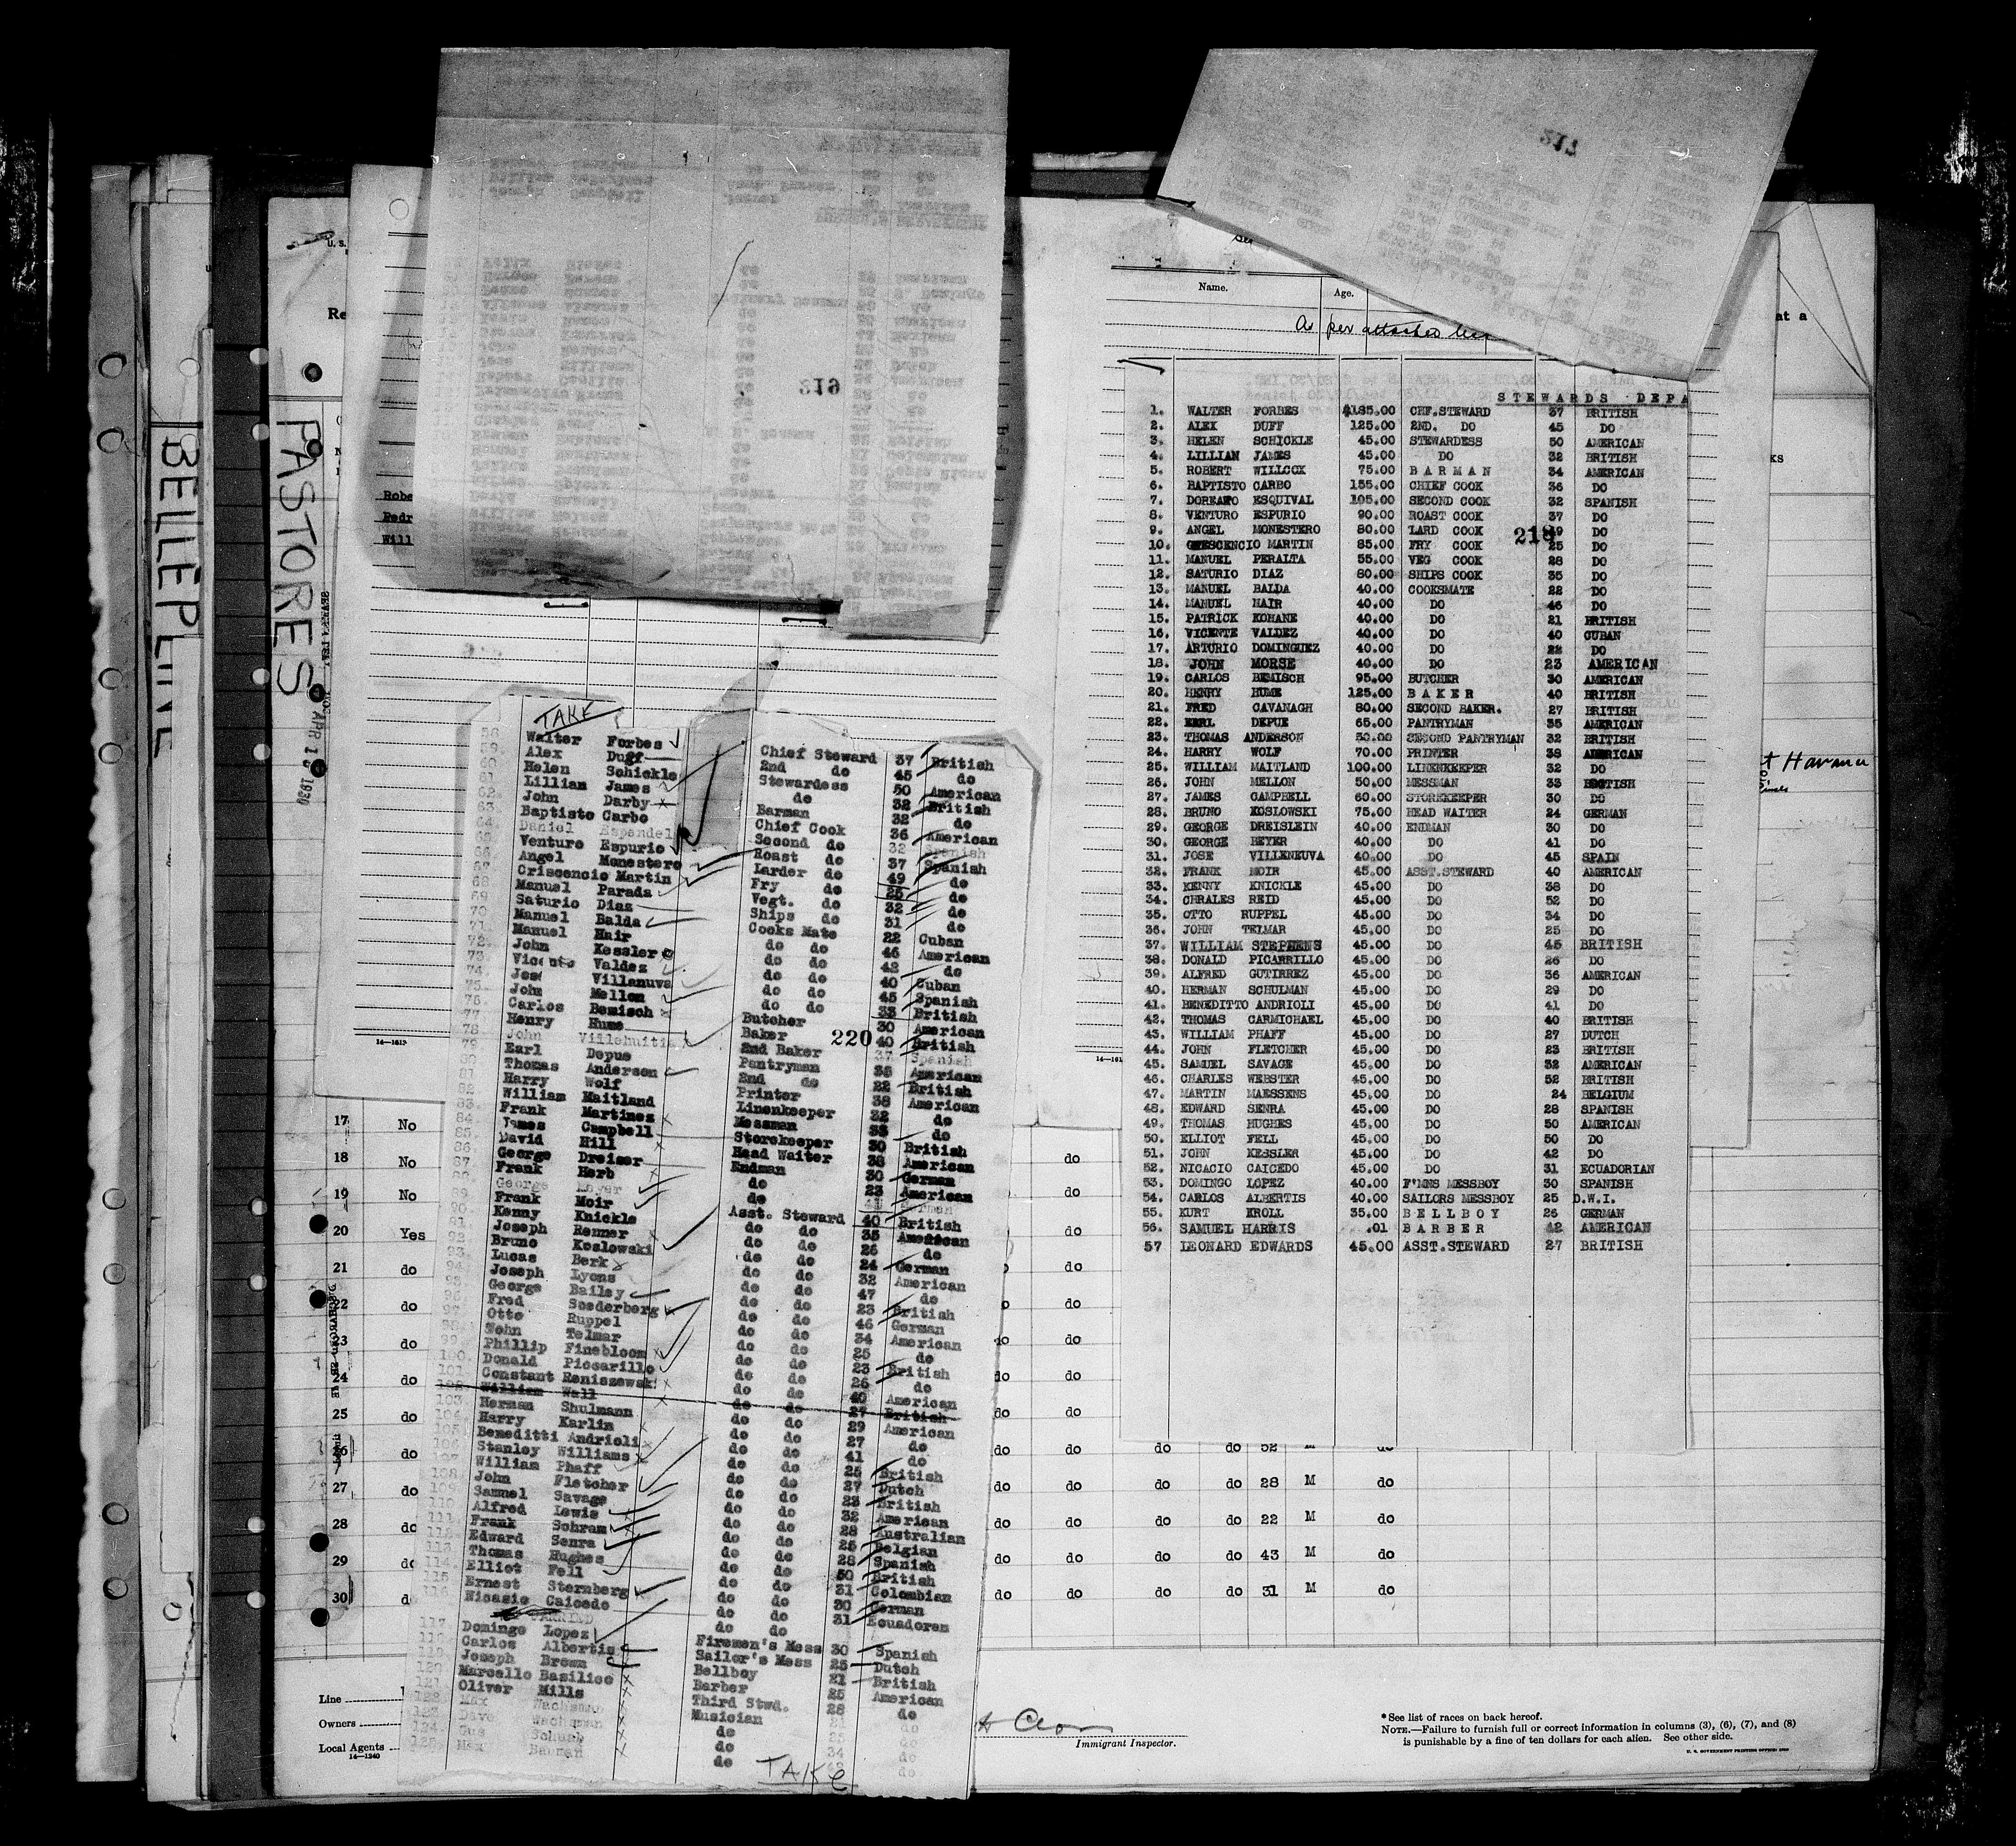 BELLEPLINE
PASTORES
APR 1 0 1930
U. S.
Re
Robe
Pedr
Will
219
217
Name. Age.
As per attached
at a
ks
STEWARDS DEPA
1. WALTER FORBES $185.00 CHF.STEWARD 37 BRITISH
2. ALEX DUFF 125.00 2ND. DO 45 DO
3. HELEN SCHICKLE 45.00 STEWARDESS 50 AMERICAN
4. LILLIAN JAMES 45.00 DO 32 BRITISH
5. ROBERT WILLCOX 75.00 BARMAN 34 AMERICAN
6. BAPTISTO CARBO 155.00 CHIEF COOK 36 DO
7. ESQUIVAL 105.00 SECOND COOK 32 SPANISH
8. VENTURO ESPURIO 90.00 ROAST COOK 37 DO
9. ANGEL MONESTERO 80.00 LARD COOK 49 DO
218
10. CRESCENCIO MARTIN 85.00 FRY COOK 25 DO
11. MANUEL PERALTA 55.00 VEG COOK 28 DO
12. SATURIO DIAZ 80.00 SHIPS COOK 35 DO
13. MANUEL BALDA 40.00 COOKSMATE 22 DO
14. MANUEL HAIR 40.00 DO 46 DO
15. PATRICK KOHANE 40.00 DO 21 BRITISH
16. VICENTE VALDEZ 40.00 DO 40 CUBAN
17. ARTURIO DOMINGUEZ 40.00 DO 22 DO
18. JOHN MORSE 40.00 DO 23 AMERICAN
19. CARLOS BEMISCH 95.00 BUTCHER 30 AMERICAN
20. HENRY HUME 125.00 BAKER 40 BRITISH
21. FRED CAVANAGH 80.00 SECOND BAKER. 27 BRITISH
22. EARL DEPUE 65.00 PANTRYMAN 35 AMERICAN
23. THOMAS ANDERSON 50.00 SECOND PANTRYMAN 32 BRITISH
24. HARRY WOLF 70.00 PRINTER 38 AMERICAN
25. WILLIAM MAITLAND 100.00 LINENKEEPER 32 DO
26. JOHN MELLON 50.00 MESSMAN 33 BRITISH
27. JAMES CAMPBELL 60.00 STOREKEEPER 30 DO
28. BRUNO KOSLOWSKI 75.00 HEAD WAITER 24 GERMAN
29. GEORGE DREISLEIN 40.00 ENDMAN 30 DO
30. GEORGE BEYER 40.00 DO 41 DO
31. JOSE VILLENEUVA 40.00 DO 45 SPAIN
32. FRANK MOIR 45.00 ASST.STEWARD 40 AMERICAN
33. KENNY KNICKLE 45.00 DO 38 DO
34. CHRALES REID 45.00 DO 52 DO
35. OTTO RUPPEL 45.00 DO 34 DO
36. JOHN TELMAR 45.00 DO 25 DO
37. WILLIAM STEPHENS 45.00 DO 45 BRITISH
38. DONALD PICARRILLO 45.00 DO 26 DO
39. ALFRED GUTIRREZ 45.00 DO 36 AMERICAN
40. HERMAN SCHULMAN 45.00 DO 29 DO
41. BENEDITTO ANDRIOLI 45.00 DO 41 DO
42. THOMAS CARMICHAEL 45.00 DO 40 BRITISH
43. WILLIAM PHAFF 45.00 DO 27 DUTCH
44. JOHN FLETCHER 45.00 DO 23 BRITISH
45. SAMUEL SAVAGE 45.00 DO 32 AMERICAN
46. CHARLES WEBSTER 45.00 DO 52 BRITISH
47. MARTIN MAESSENS 45.00 DO 24 BELGIUM
48. EDWARD SENRA 45.00 DO 28 SPANISH
49. THOMAS HUGHES 45.00 DO 50 AMERICAN
50. ELLIOT FELL 45.00 DO 50 DO
51. JOHN KESSLER 45.00 DO 42 DO
52. NICACIO CAICEDO 45.00 DO 31 ECUADORIAN
53. DOMINGO LOPEZ 40.00 F'MNS MESSBOY 30 SPANISH
54. CARLOS ALBERTIS 40.00 SAILORS MESSBOY 25 D.W.I.
55. KURT KROLL 35.00 BELLBOY 26 GERMAN
56. SAMUEL HARRIS .01 BARBER 42 AMERICAN
57 LEONARD EDWARDS 45.00 ASST.STEWARD 27 BRITISH
t Havana
TAKE
58. Walter Forbes Chief Steward 37 British
59. Alex Duff 2nd do 45 do
60. Helen Schickle Stewardess 50 American
61. Lillian James do 32 British
62. John Darby Barman 32 do
63. Baptisto Carbo Chief Cook 36 American
64. Daniel Espendel Second do 32 Spanish
65. Venturo Espurio Roast do 37 Spanish
66. Angel Monestero Larder do 49 do
67. Criscencio Martin Fry do 25 do
68. Manuel Parada Vegt. do 32 do
69. Saturio Diaz Ships do 31 do
70. Manuel Balda Cooks Mate 22 Cuban
71. Manuel Hair do do 46 American
72. John Kessler do do 42 do
73. Vicente Valdez do do 40 Cuban
74. Jose Villanuva do do 45 Spanish
75. John Mellon do do 33 British
76. Carlos Bemisch Butcher 30 American
77. Henry Hume Baker 40 British
220
78. John Villehuitia 2nd Baker 37 Spanish
79. Earl Depue Pantryman 35 American
80. Thomas Anderson 2nd do 22 British
81. Harry Wolf Printer 38 American
82. William Maitland Linenkeeper 32 do
83. Frank Martinez Messman 33 do
84. James Campbell Storekeeper 30 British
85. David Hill Head Waiter 38 American
86. George Dreiser Endman 30 German
87. Frank Herb do 23 American
88. George do 41 German
89. Frank Moir Asst. Steward 40 British
90. Kenny Knickle do do 35 American
91. Joseph Renner do do 26 do
92. Bruno Koslowski do do 24 German
93. Lucas Berk do do 32 American
94. Joseph Lyons do do 47 do
95. George Bailey do do 23 British
96. Fred Soederberg do do 46 German
97. Otto Ruppel do do 34 American
98. John Telmar do do 25 do
99. Phillip Finebloom do do 23 British
100. Donald Piccarillo do do 26 do
101. Constant Reniszewski do do 40 American
102. William Wall do do 27 British
103. Herman Shulmann do do 29 American
104. Harry Karlin do do 27 do
105. Beneditti Andrioli do do 41 do
106. Stanley Williams do do 25 British
107. William Phaff do do 27 Dutch
108. John Fletcher do do 23 British
109. Samuel Savage do do 32 American
110. Alfred Lewis do do 28 Australian
111. Frank Schram do do 25 Belgian
112. Edward Senra do do 28 Spanish
113. Thomas Hughes do do 50 British
114. Elliot Fell do do 31 Colombian
115. Ernest Sternberg do do 30 German
116. Nicasio Caicedo do do 31 Ecuadoren
117. Domingo Lopez Firemen's Mess 30 Spanish
118. Carlos Albertis Sailor's Mess 25 Dutch
119. Joseph Brown Bellboy 21 British
120. Marcello Basilico Barber 25 American
121. Oliver Mills Third Stwd. 28 do
122. Max Wachsman Musician 21 do
123. Dave Wachsman do 25 do
124. Gus Schurb do 34 do
125. Max Bauman do do
TAKE
14—1613
14—161
17 No
18 No do
19 No do
20 Yes do
21 do do
22 do do do
23 do do do
24 do do do
25 do do do
26 do do do do 52 M do
27 do do do do do 28 M do
28 do do do do do 22 M do
29 do do do do do 43 M do
30 do do do do do 31 M do
Line
Owners
Local Agents
14—1240
Immigrant Inspector.
* See list of races on back hereof.
NOTE.—Failure to furnish full or correct information in columns (3), (6), (7), and (8)
is punishable by a fine of ten dollars for each alien. See other side.
U. S. GOVERNMENT PRINTING OFFICE: 1929